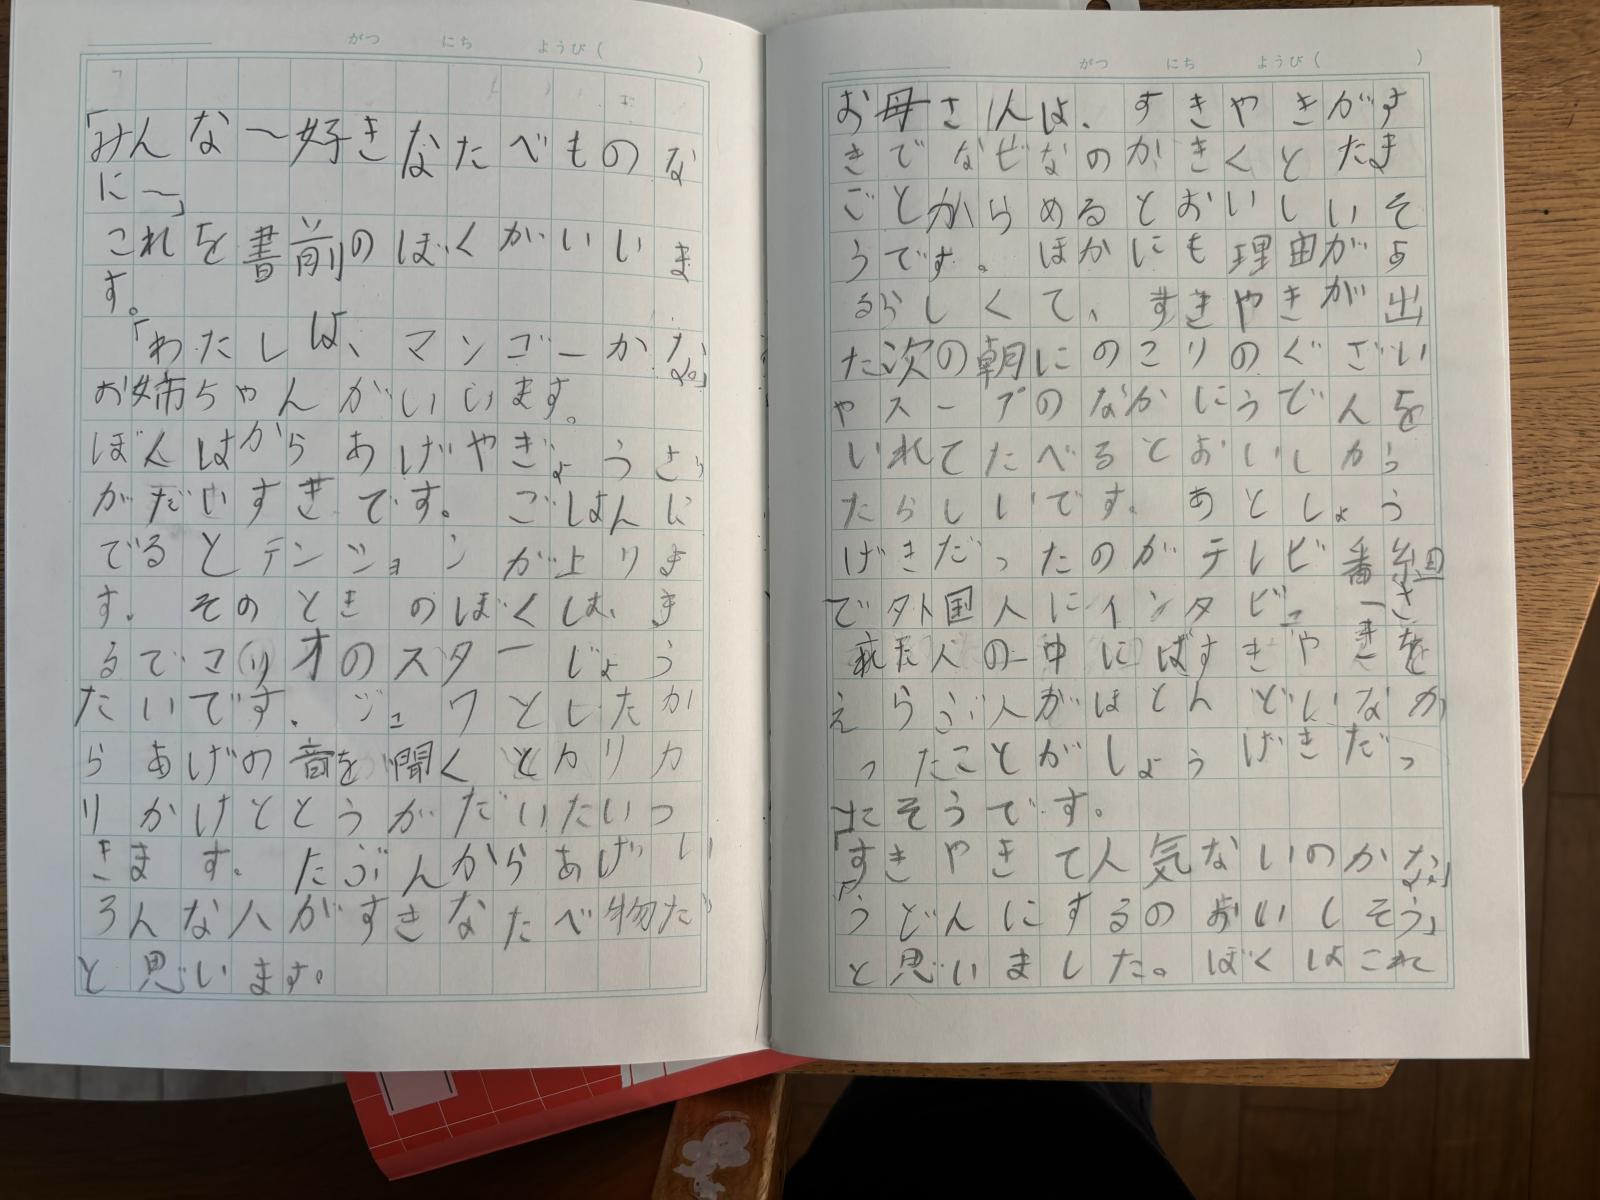 がつ にち ようび( )
「みんな〜好きなたべものな
に〜」
これを書前のぼくがいいま
す。
「わたしは、マンゴーかな。」
お姉ちゃんがいいます。
ぼんはからあげやぎょうさ
がだいすきです。ごはんに
でるとテンションが上りま
す。そのときのぼくは、ま
るでマリオのスターじょう
たいです。ジュワとしたか
らあげの音を聞くとカリカ
りかけととうがだいたいつ
きます。たぶんからあげい
ろんな人がすきなたべ物だ
と思います。
がつ にち ようび( )
お母さんは、すきやきがす
きでなぜなのかきくとたま
ごとからめるとおいしいそ
うです。ほかにも理由があ
るらしくて、すきやきが出
た次の朝にのこりのぐざい
やスープのなかにうでんを
いれてたべるとおいしかっ
たらしいです。あとしょう
げきだったのがテレビ番組
で外国人にインタビューさ
れた人の中にはすきやきを
えらぶ人がほとんどいなか
ったことがしょうげきだっ
たそうです。
「すきやきて人気ないのかな。」
「うどんにするのおいしそう」
と思いました。ぼくはこれ